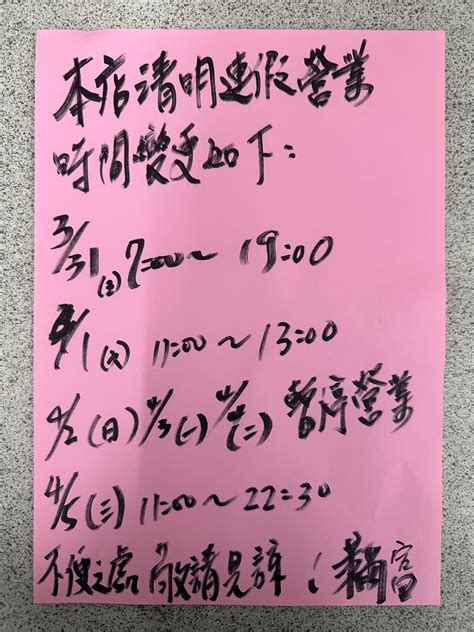 本店清明連假營業
時間變更如下:
3/31(五)7:00~19:00
4/1(六) 11:00~13:00
4/2(日)4/3(一)4/4(二)暫停營業
4/5(三)11:00~22:30
不便之處 敬請見諒! 富